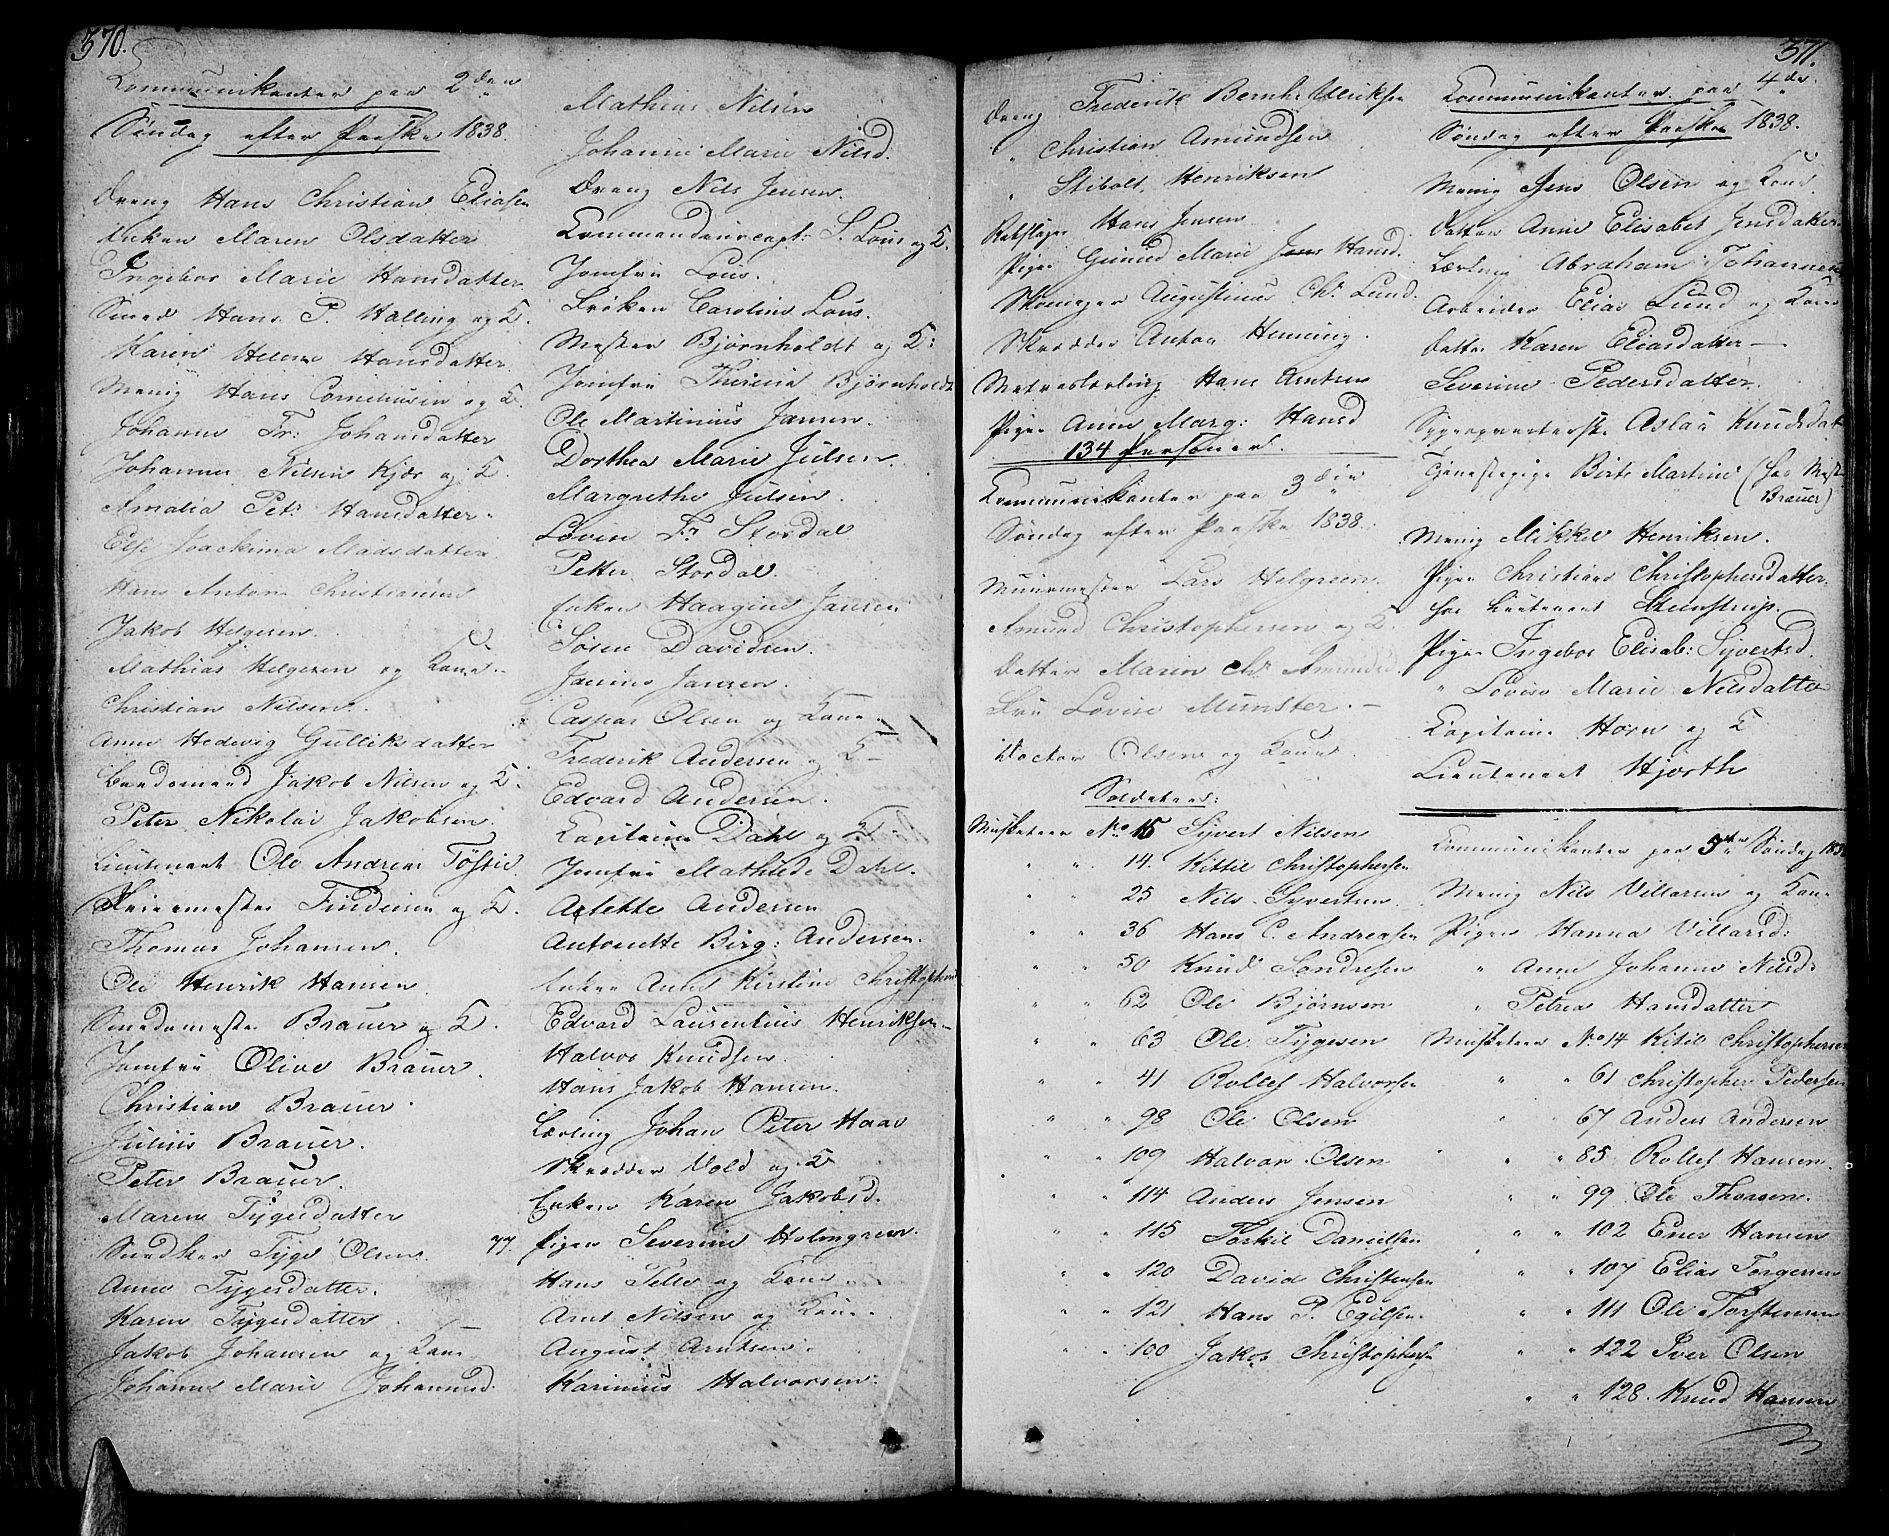 370.
Kommunikanter paa 2den
Søndag efter Paaske 1838.
Dreng Hans Christian Eliasen
Enken Maren Olsdatter
Ingebor Marie Hansdatter
Smed Hans P. Halling og K.
Karen Helene Hansdatter
Menig Hans Corneliusen og K.
Johanne Fr: Johansdatter
Johannes Nilsen Kjær og K.
Amalia Pet: Hansdatter
Else Joachima Madsdatter
Hans Anton Christiansen
Jakob Helgesen.
Mathias Helgesen og Kone.
Christian Nilsen.
Anne Hedevig Gulliksdatter
Jakob Nilsen og K.
Peter Nikolai Jakobsen.
Lieutenant Ole Andreas
og K.
Thomas Johansen.
Ole Henrik Hansen.
Smedemester Brauer og K.
Jomfru Olive Brauer.
Christian Brauer.
Julius Brauer.
Peter Brauer.
Maren Tygesdatter
Tyge Olsen. 77.
Anne Tygesdatter.
Karen Tygesdatter.
Jakob Johansen og Kone
Johanne Marie Johannesd.
Mathias Nilsen
Johanne Marie Nilsd.
Dreng Nils Jensen.
Kommandeurcapt: S. Lous og K.
Jomfru Lous.
Frøken Caroline Lous.
Mester Bjørnholdt og K:
Jomfru Bjørnholdt
Ole Martinius Jansen.
Dorthea Marie Julsen.
Margrethe Julsen.
Lovise Fr Stordal
Petter Stordal.
Enken Haagine Jansen
Søren Davidsen.
Janine Jansen.
Caspar Olsen og Kone.
Frederik Andersen og K
Edvard Andersen.
Kapitaine Dahl og K.
Jomfru Mathilde Dahl.
Andersen
Antonette Birg: Andersen.
Enken Anne Kirstine
Edvard Laurentius Henriksen
Halvor Knudsen.
Hans Jakob Hansen.
Lærling Johan Peter Haar
Skrædder Vold og K
Enken Karen Jakobsd.
Pigen Severine Holmgreen.
Hans og Kone.
Arnt Nilsen og Kone.
August Arntsen.
Karinius Halvorsen.
371.
Dreng Frederik Bernh: Ulriksen
" Christian Amundsen
" Stibolt Henriksen
Rebslager Hans Jensen
Pigen Gunild Marie Hansd.
Skomager Augustinus Chr. Lund.
Skrædder Anton Henning.
Matroslærling Hans Arntsen
Pigen Anne Marg: Hansd
134 Personer.
Kommunikanter paa 3die
Søndag efter Paaske 1838.
Muurmester Lars Helgesen.
Amund Christophersen og K.
Datter Maren Chr. Amundsd.
Fru Lovise Munster.
Doctor Olsen og Kone.
Soldater:
Musketeer No. 15 Syvert Nilsen
" " 14. Kittil Christophersen
" " 25 Nils Syvertsen.
" " 36 Hans C. Andreasen
" " 50 Knud Sondresen
" " 62 Ole Bjørnsen
" " 63 Ole Tygesen
" " 41 Rollef Halvorsen
" " 98 Ole Olsen
" " 109 Halvor Olsen
" " 114 Anders Jensen
" " 115 Torkil Danielsen
" " 120 David Christensen
" " 121 Hans P. Egilsen.
" " 100 Jakob Christophersen
Kommunikanter paa 4de
Søndag efter Paaske 1838.
Menig Jens Olsen og Kone
Datter Anne Elisabet Jensdatter
Lærling Abraham Johannesen
Arbeider Elias Lund og Kone
Datter Karen Eliasdatter
Severine Pedersdatter.
Aslau Knudsdat
Tjenestepige Birte Martine (hos Mest
Brauer)
Menig Mikkel Henriksen.
Pigen Christiane Christophersdatter
hos Lieutenant Steinstrup.
Pigen Ingebor Elisab: Syvertsd.
" Lovise Marie Nilsdatter
Kapitaine Horn og K
Lieutenant Hjorth
Kommunikanter paa 5te Søndag 1838
Menig Nils Villarsen og Kone
Pigen Hanna Villarsd:
" Anne Johanne Nilsd:
" Petrea Hansdatter
Musketeer No. 14 Kitil Christophersen
" " 61 Christopher Pedersen
" " 67 Anders Andersen
" " 85 Rollef Hansen.
" " 99 Ole Thorsen.
" " 102 Ener Hansen
" " 107 Elias Torgersen
" " 111 Ole Torstensen
" " 122 Iver Olsen
" " 128. Knud Hansen